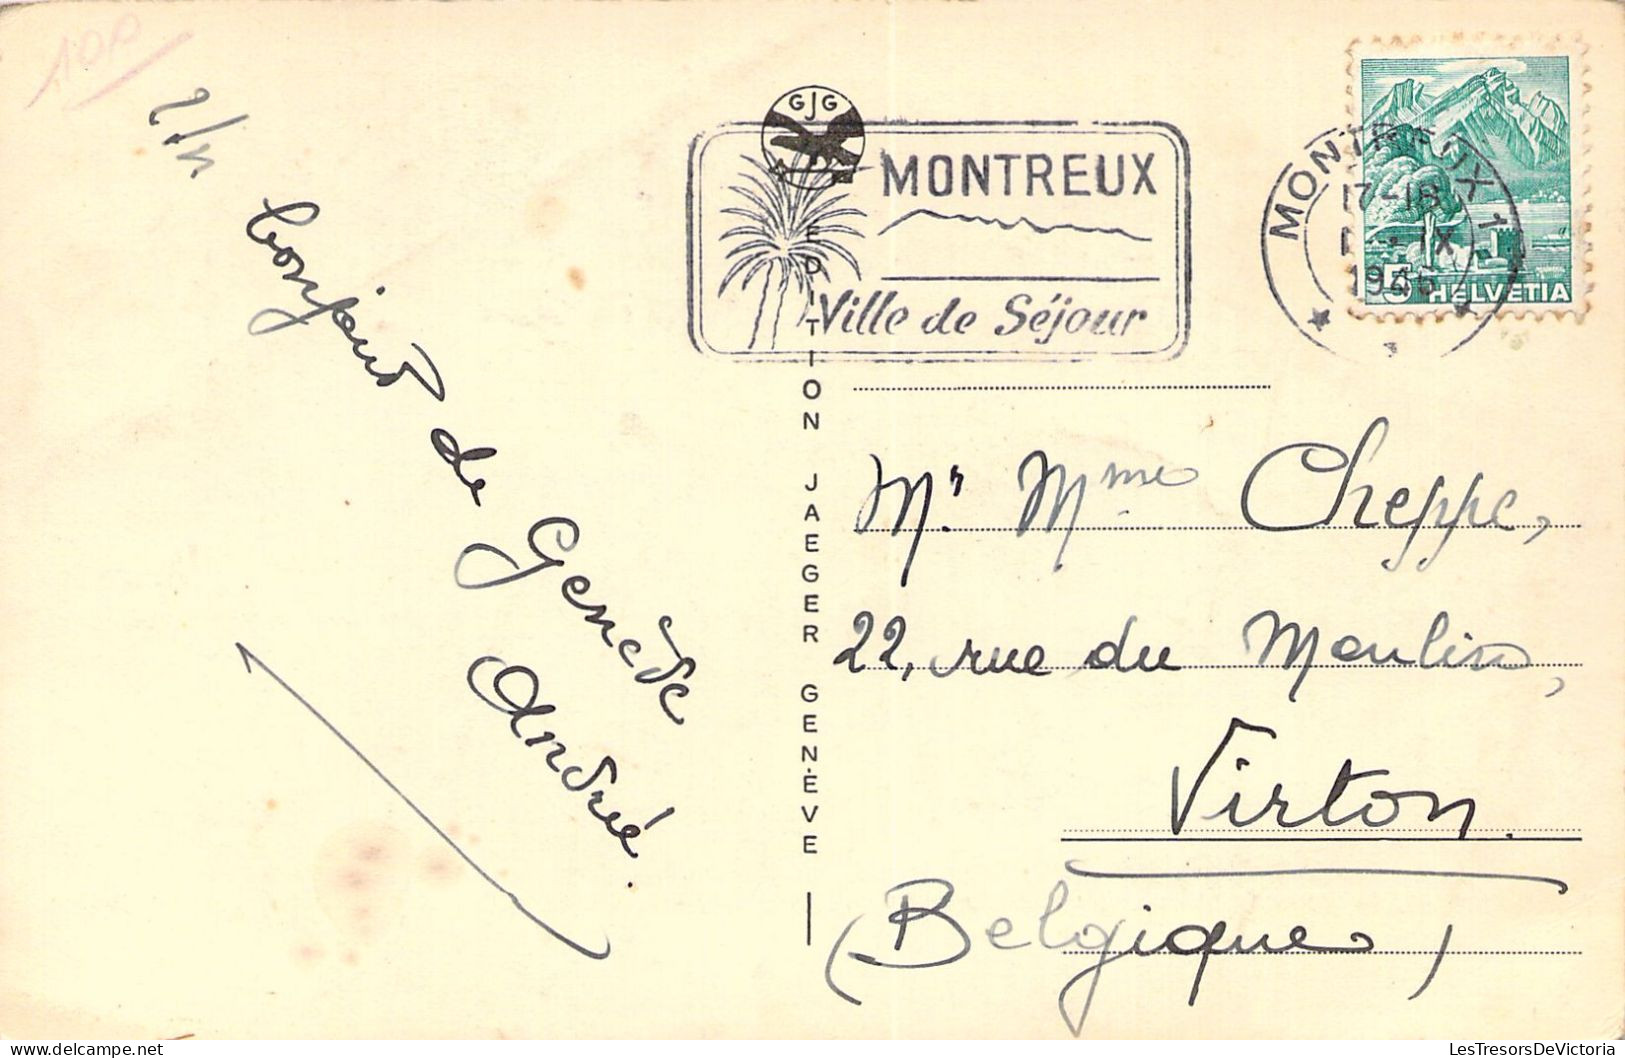 10P
bonjour
de
Genève
André.
GJG
EDITION JAEGER GENÈVE
MONTREUX
Ville de Séjour
MONTREUX 1
17-18
IX
1946
5 HELVETIA
Mr Mme Cheppe,
22, rue du Moulin,
Virton.
(Belgique)
LesTresorsDeVictoria